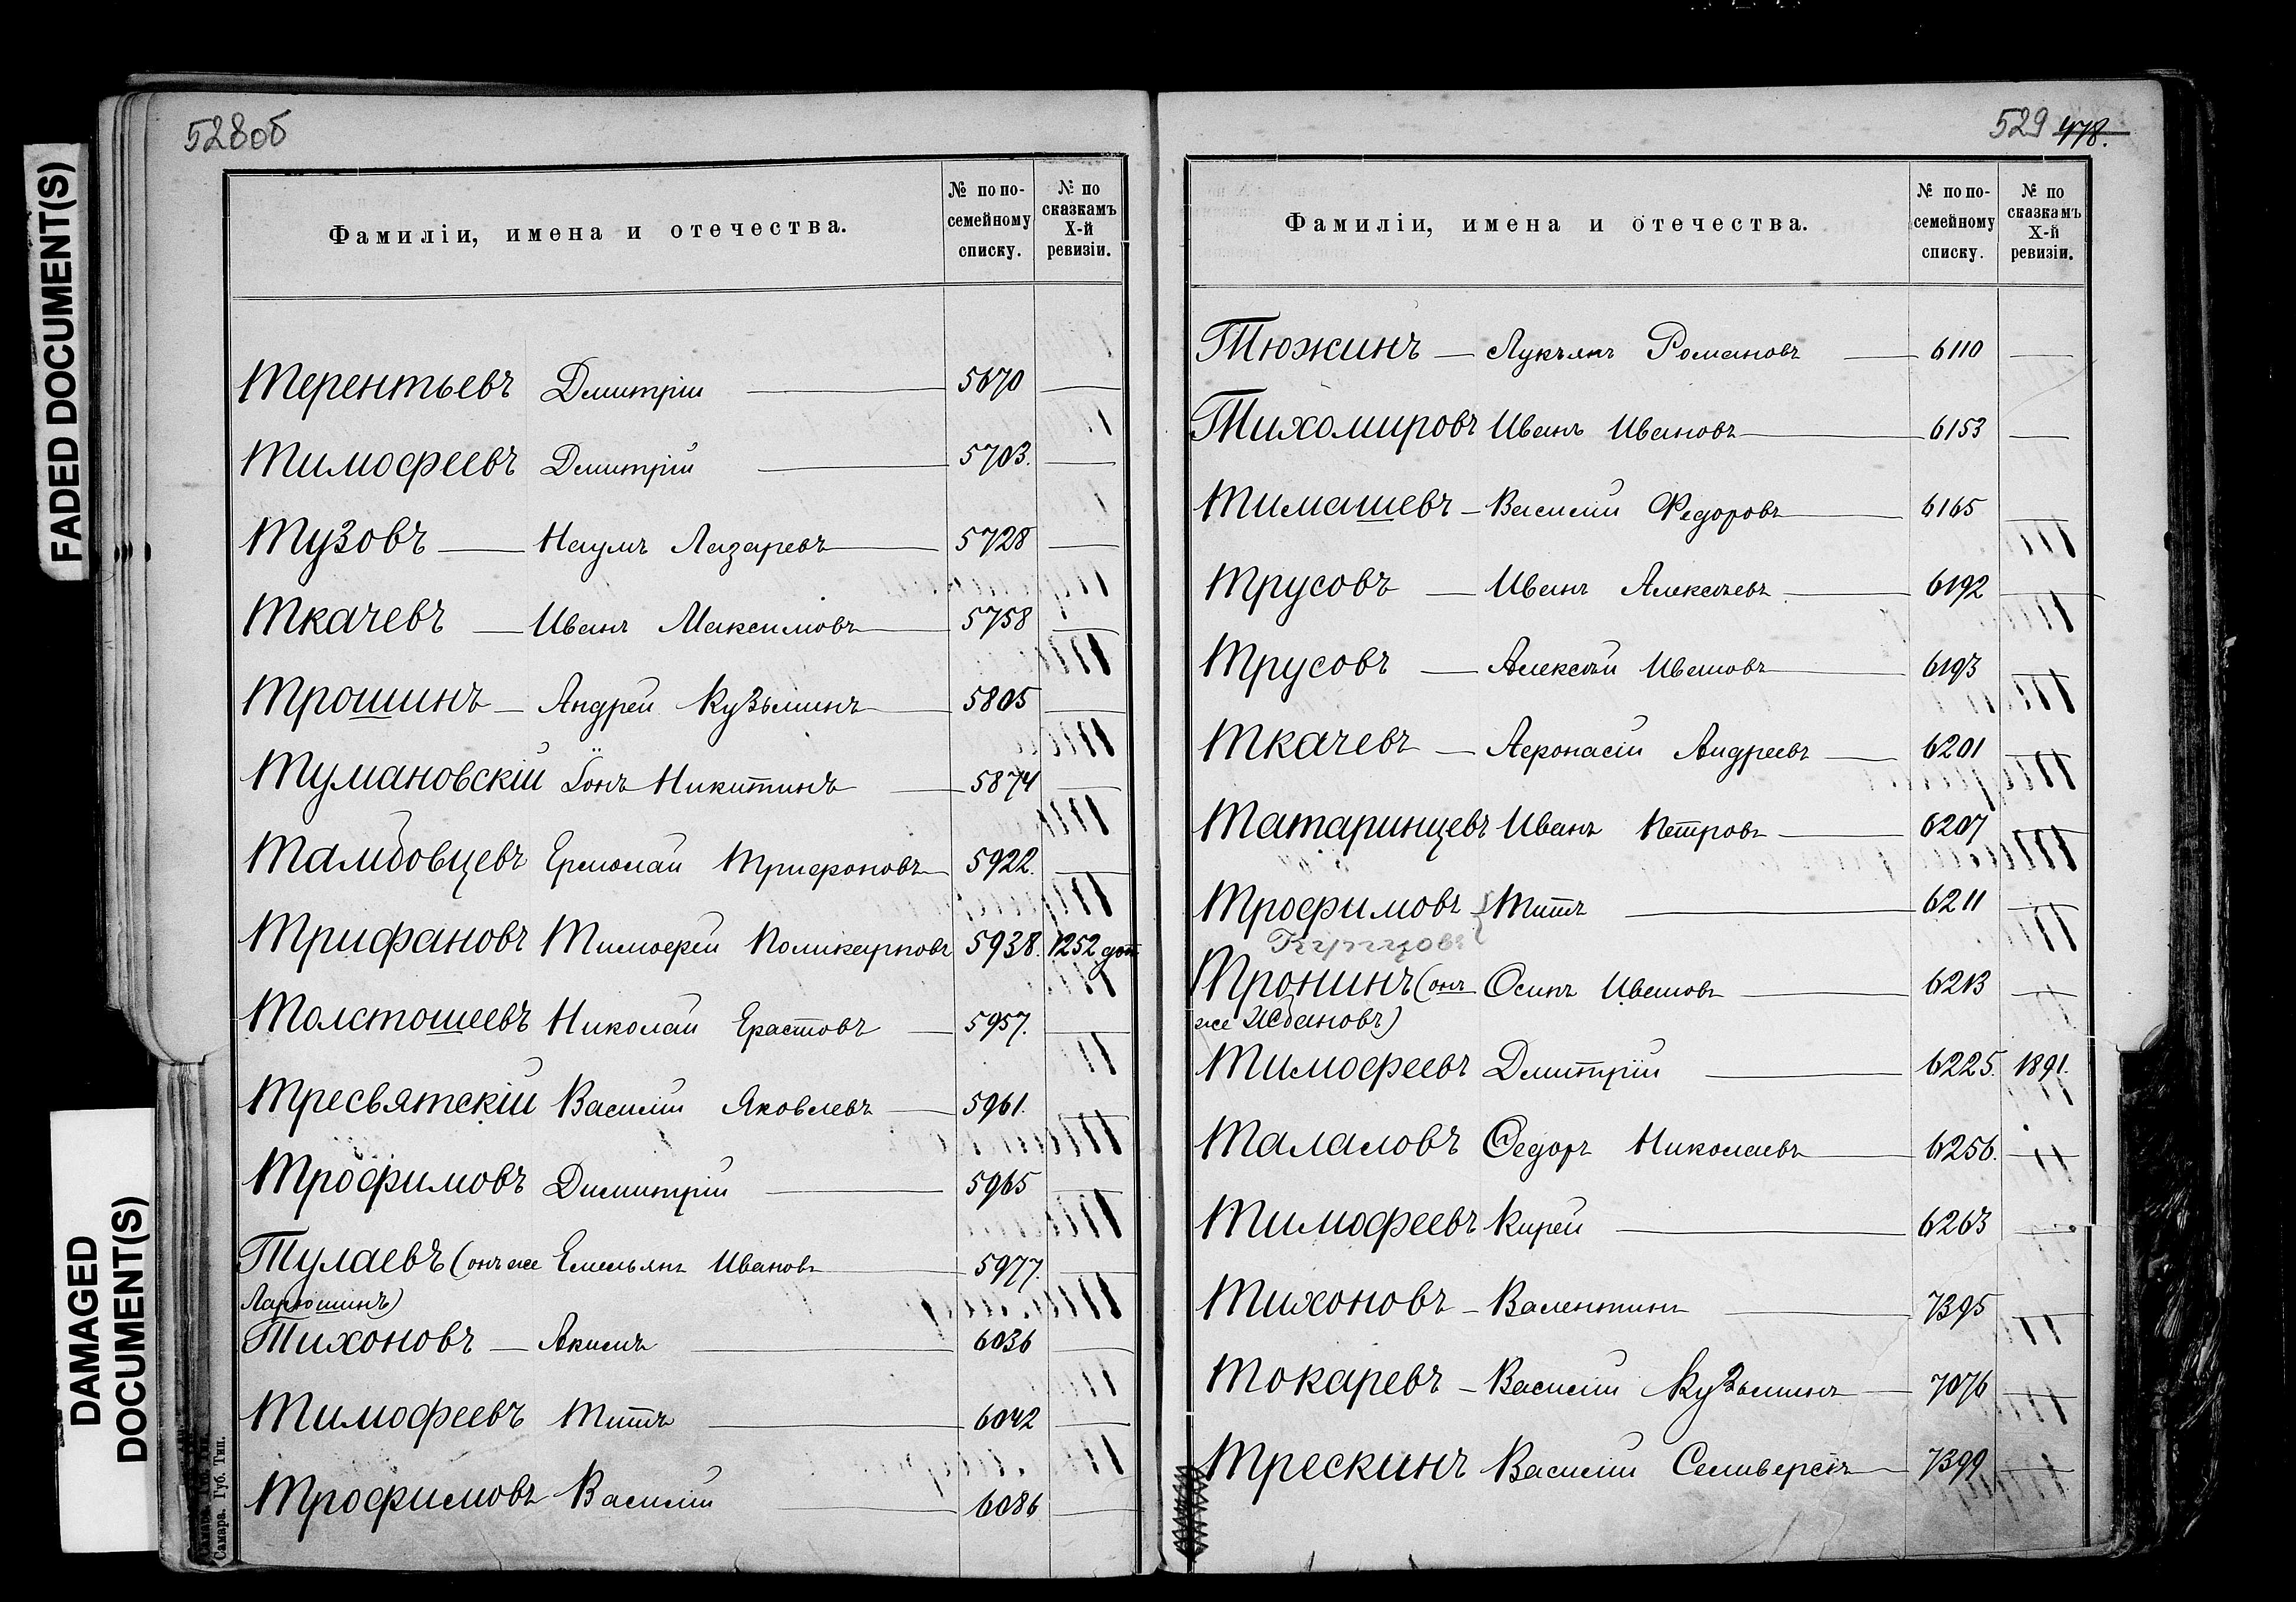 FADED DOCUMENT(S)
DAMAGED
DOCUMENT(S)
528об
Фамиліи, имена и отечества.
№ по по-
семейному
списку.
№ по
сказкамъ
X-й
ревизіи.
Терентьевъ Дмитрій 5670
Тимофеевъ Дмитрій 5703.
Тузовъ Наумъ Лазаревъ 5728
Ткачевъ Иванъ Максимовъ 5758
Трошинъ Андрей Кузьминъ 5805
Тумановскій Іонъ Никитинъ 5874
Тамбовцевъ Ермолай Трифоновъ 5922.
Трифановъ Тимофей Поликарповъ 5938. 1252 доп
Толстошеевъ Николай Ерастовъ 5957.
Тресвятскій Василій Яковлевъ 5961.
Трофимовъ Димитрій 5965
Тулаевъ (онъ же Емельянъ Ивановъ 5977.
Ларюшинъ)
Тихоновъ Акимъ 6036
Тимофеевъ Титъ 6042
Трофимовъ Василій 6086
Самара. Губ. Тип.
529 478.
Фамиліи, имена и отечества.
№ по по-
семейному
списку.
№ по
сказкамъ
X-й
ревизіи.
Тюжинъ Лукъянъ Романовъ 6110
Тихомировъ Иванъ Ивановъ 6153
Тимашевъ Василій Федоровъ 6165
Трусовъ Иванъ Алексѣевъ 6192
Трусовъ Алексѣй Ивановъ 6193
Ткачевъ Афонасій Андреевъ 6201
Татаринцевъ Иванъ Петровъ 6207
Трофимовъ Титъ 6211
Купцовъ
Тронинъ (онъ Осипъ Ивановъ 6213
же Ждановъ)
Тимофеевъ Дмитрій 6225. 1891.
Талаловъ Федоръ Николаевъ 6256.
Тимофеевъ Кирей 6263
Тихоновъ Валентинъ 7395
Токаревъ Василій Кузьминъ 7076
Трескинъ Василій 7399